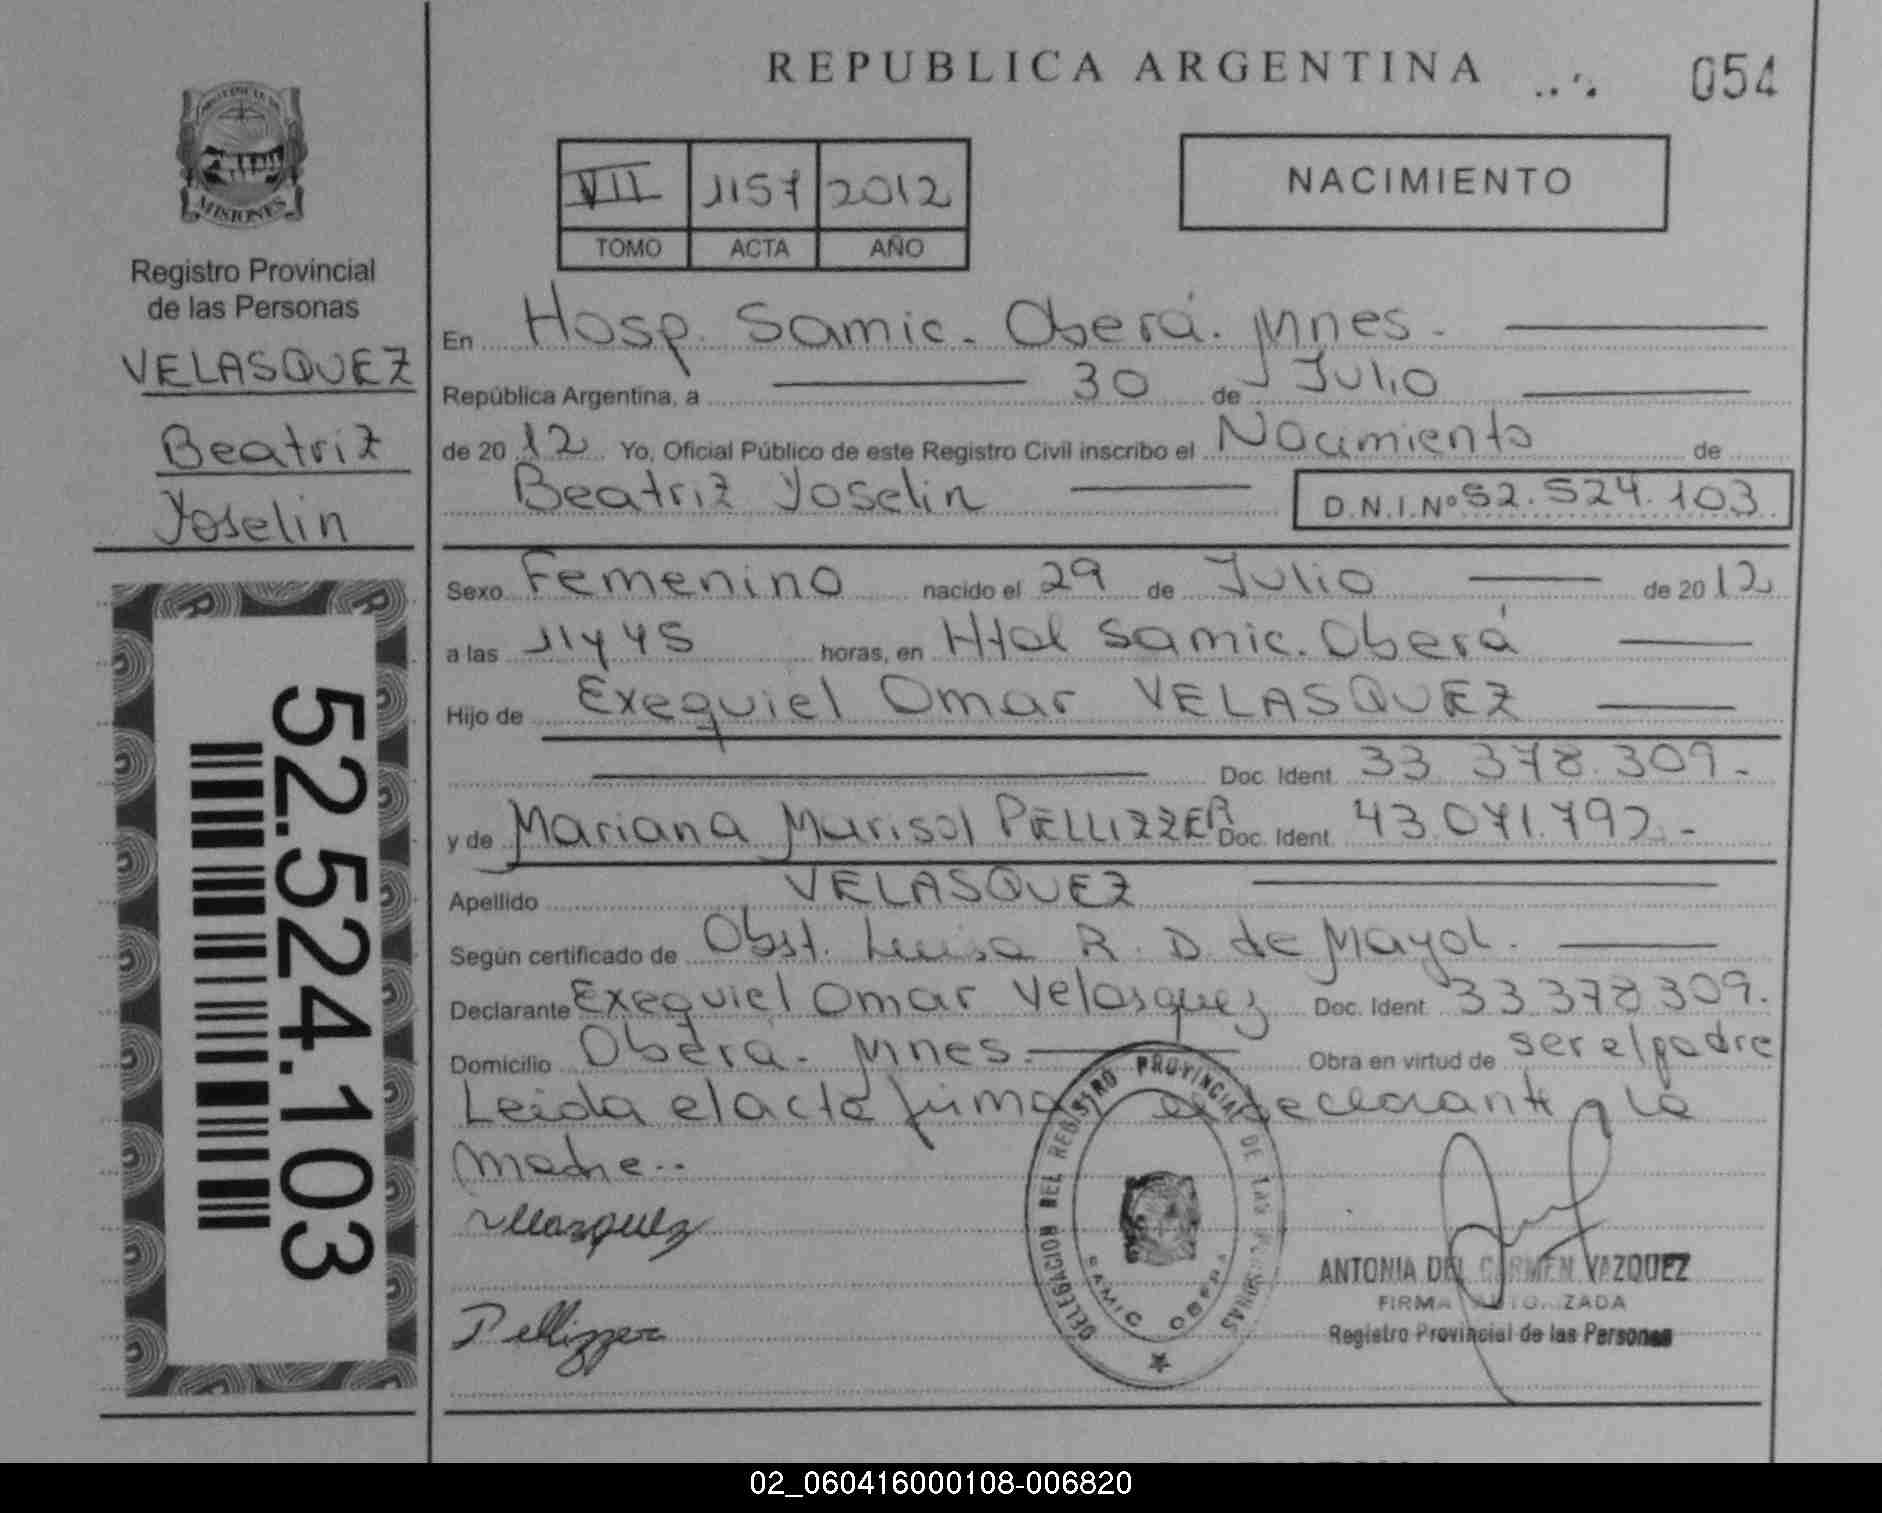 REPUBLICA ARGENTINA
054
PROVINCIA DE
MISIONES
Registro Provincial
de las Personas
VELASQUEZ
Beatriz
Yoselin
52.524.103
VII 1157 2012
TOMO ACTA AÑO
NACIMIENTO
En Hosp. Samic. Oberá. Mnes.
República Argentina, a 30 de Julio
de 20 12 Yo, Oficial Público de este Registro Civil inscribo el Nacimiento de
Beatriz Yoselin D.N.I.Nº 52.524.103
Sexo Femenino nacido el 29 de Julio de 20 12
a las 11 y 45 horas, en Htal Samic. Oberá
Hijo de Exequiel Omar VELASQUEZ
Doc. Ident. 33 378.309.-
y de Mariana Marisol PELLIZZER Doc. Ident. 43.071.792.-
Apellido VELASQUEZ
Según certificado de Obst. Luisa R. D. de Mayol.
Declarante Exequiel Omar Velasquez Doc. Ident. 33 378 309.
Domicilio Oberá. Mnes. Obra en virtud de ser el padre
Leida el acta firman el declarante y la
madre..
Velazquez
Pellizzer
DELEGACION DEL REGISTRO PROVINCIAL DE LAS PERSONAS
SAMIC OBERA
ANTONIA DEL CARMEN VAZQUEZ
FIRMA AUTORIZADA
Registro Provincial de las Personas
02_060416000108-006820